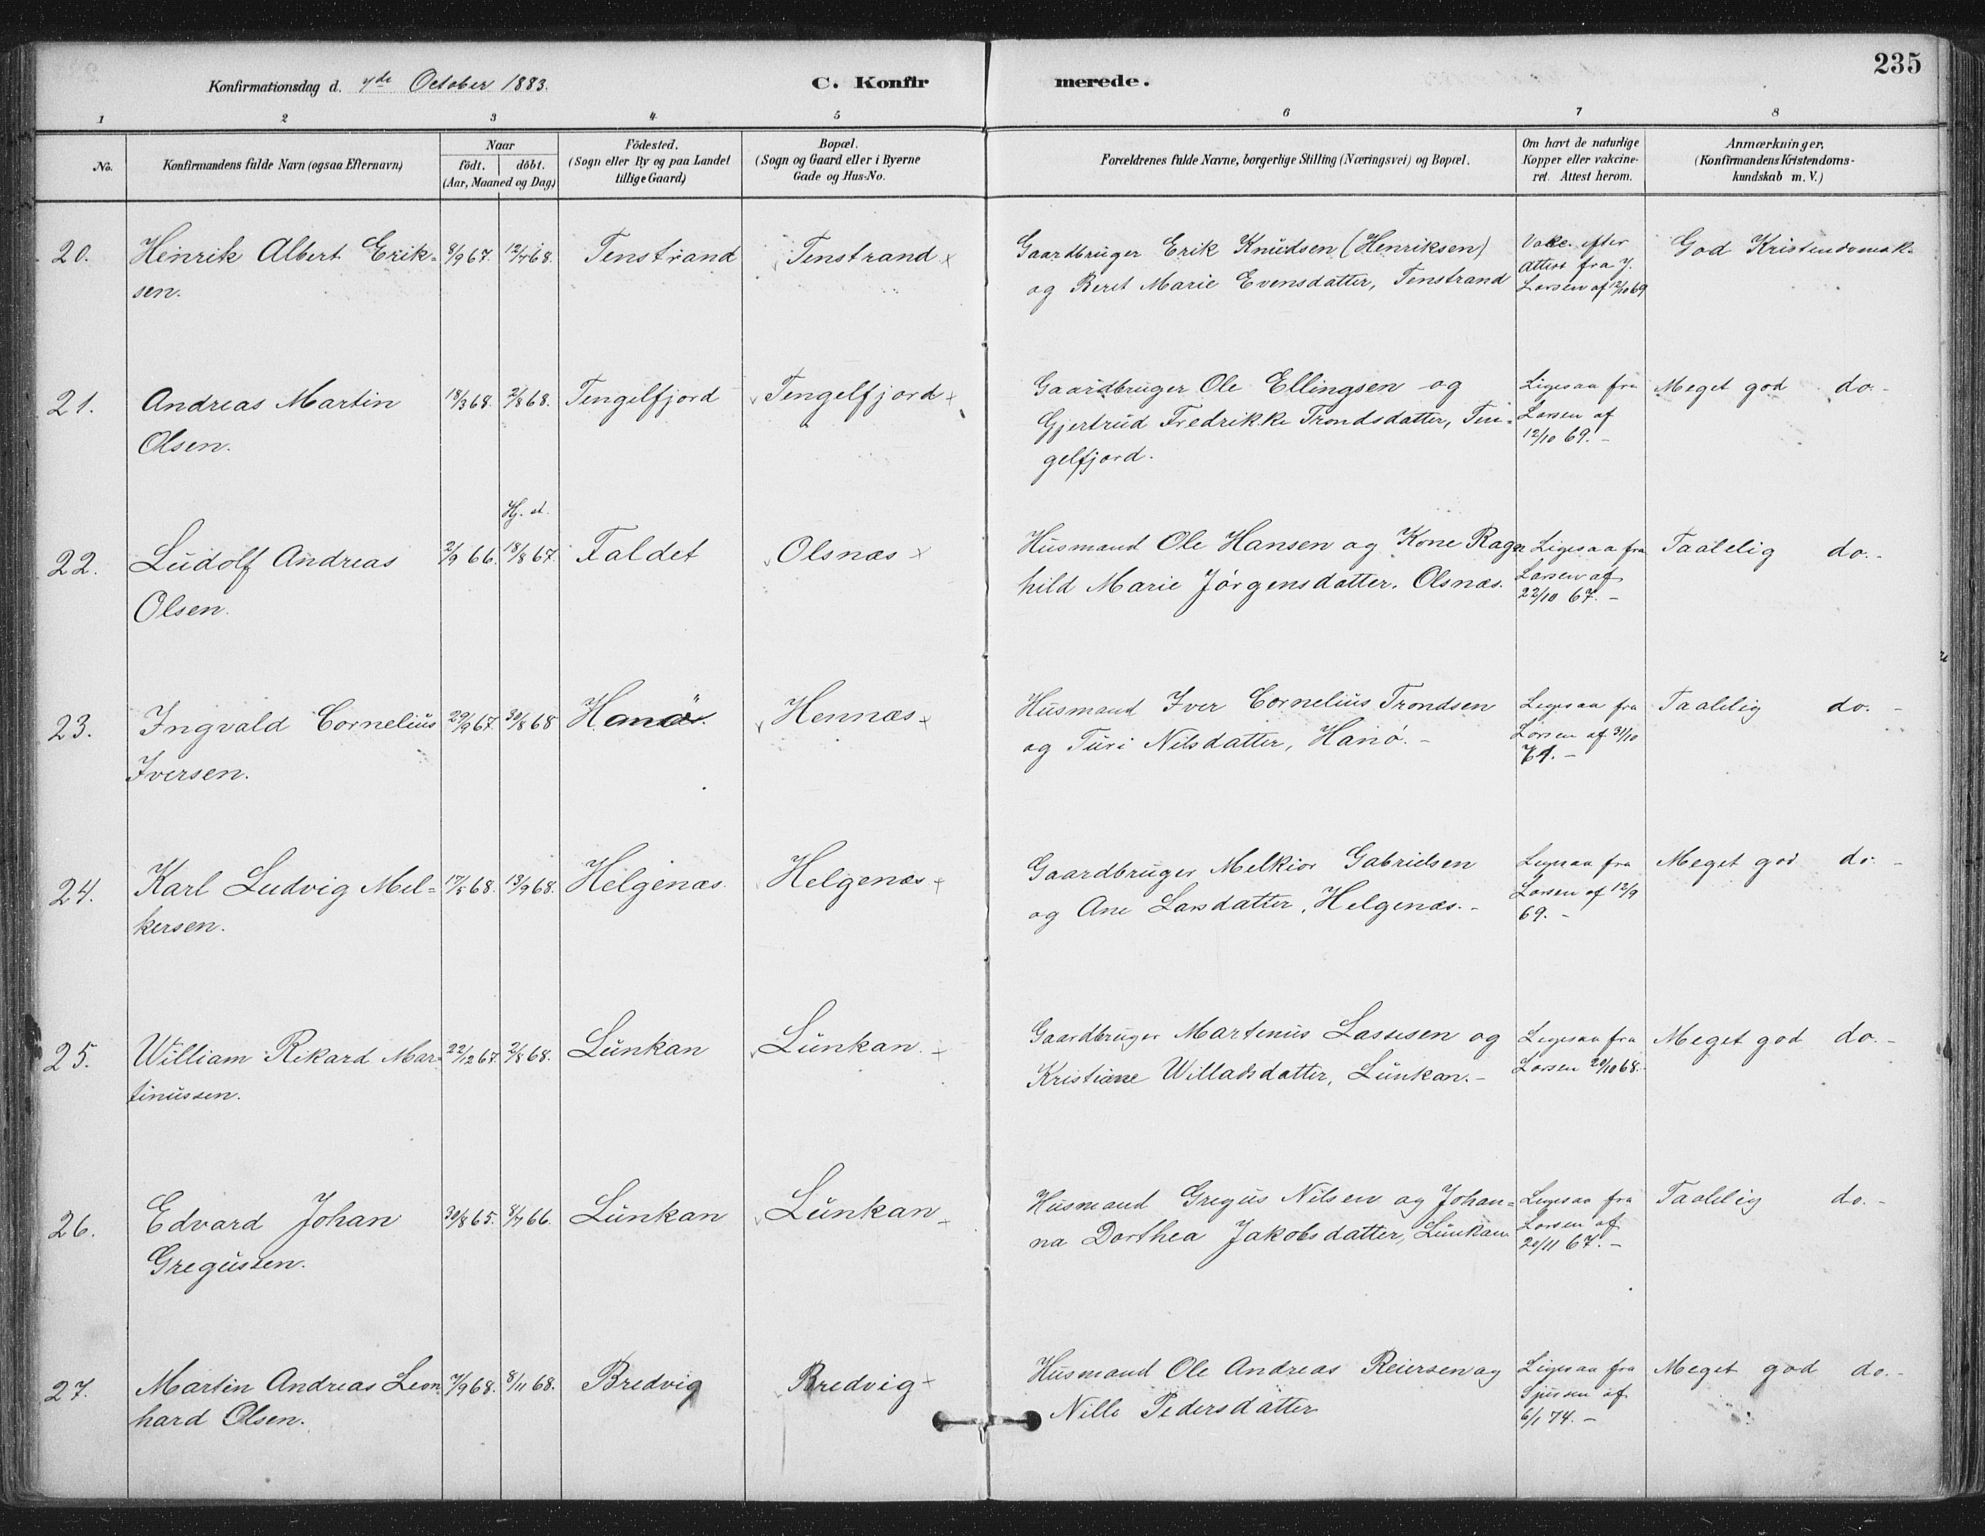 235
Konfirmationsdag d. 7de October 1883.
C. Konfirmerede.
1 2 3 4 5 6 7 8
No.
Konfirmandens fulde Navn (ogsaa Efternavn)
Naar
födt. döbt.
(Aar, Maaned og Dag)
Födested.
(Sogn eller By og paa Landet
tillige Gaard)
Bopæl.
(Sogn og Gaard eller i Byerne
Gade og Hus-No.
Forældrenes fulde Navne, borgerlige Stilling (Næringsvei) og Bopæl.
Om havt de naturlige
Kopper eller vakcine-
ret. Attest herom.
Anmærkninger.
(Konfirmandens Kristendoms-
kundskab m. V.)
20. Henrik Albert Erik- 8/9 67. 12/7 68. Tenstrand Tenstrand x
sen.
Gaardbruger Erik Knudsen (Henriksen)
og Beret Marie Evensdatter, Tenstrand
Vakc. efter
Attest fra J.
Larsen af 12/10 69
God Kristendomsk.
21. Andreas Martin 18/3 68. 2/8 68. Tengelfjord Tengelfjord x
Olsen.
Gaardbruger Ole Ellingsen og
Gjertrud Fredrikke Trondsdatter, Ten-
gelfjord.
Ligesaa fra
Larsen af
12/10 69. -
Meget god do. -
Hj. d.
22. Ludolf Andreas 2/9 66. 18/8 67. Faldet Olsnæs x
Olsen.
Husmand Ole Hansen og Kone Ragn
hild Marie Jørgensdatter. Olsnæs.
Ligesaa fra
Larsen af
22/10 67. -
Taalelig do. -
23. Ingvald Cornelius 29/9 67. 30/8 68 Hanö. Hennæs x
Iversen.
Husmand Iver Cornelius Trondsen
og Turi Nilsdatter, Hanø. -
Ligesaa fra
Larsen af 31/10
Taalelig do. -
24. Karl Ludvig Mel- 17/5 68. 13/9 68. Helgenæs. Helgenæs x
kersen.
Gaardbruger Melkior Gabrielsen
og Ane Larsdatter, Helgenæs. -
Ligesaa fra
Larsen af 12/9
69. -
Meget god do. -
25. William Rikard Mar- 22/12 67 2/8 68. Lunkan Lunkan. x
tinussen.
Gaardbruger Martenus Lassesen og
Kristiane Willadsdatter, Lunkan. -
Ligesaa fra
Larsen 20/10 68.
Meget god do. -
26. Edvard Johan 30/8 65. 8/7 66. Lunkan Lunkan
Gregussen.
Husmand Gregus Nilsen og Johan-
na Dorthea Jakobsdatter, Lunkan
Ligesaa fra
Larsen af
20/11 67. -
Taalelig do. -
27. Martin Andreas Leon 7/9 68. 8/11 68. Bredvig Bredvig x
hard Olsen.
Husmand Ole Andreas Reiersen og
Nille Pedersdatter
Ligesaa fra
6/1 74. -
Meget god do. -